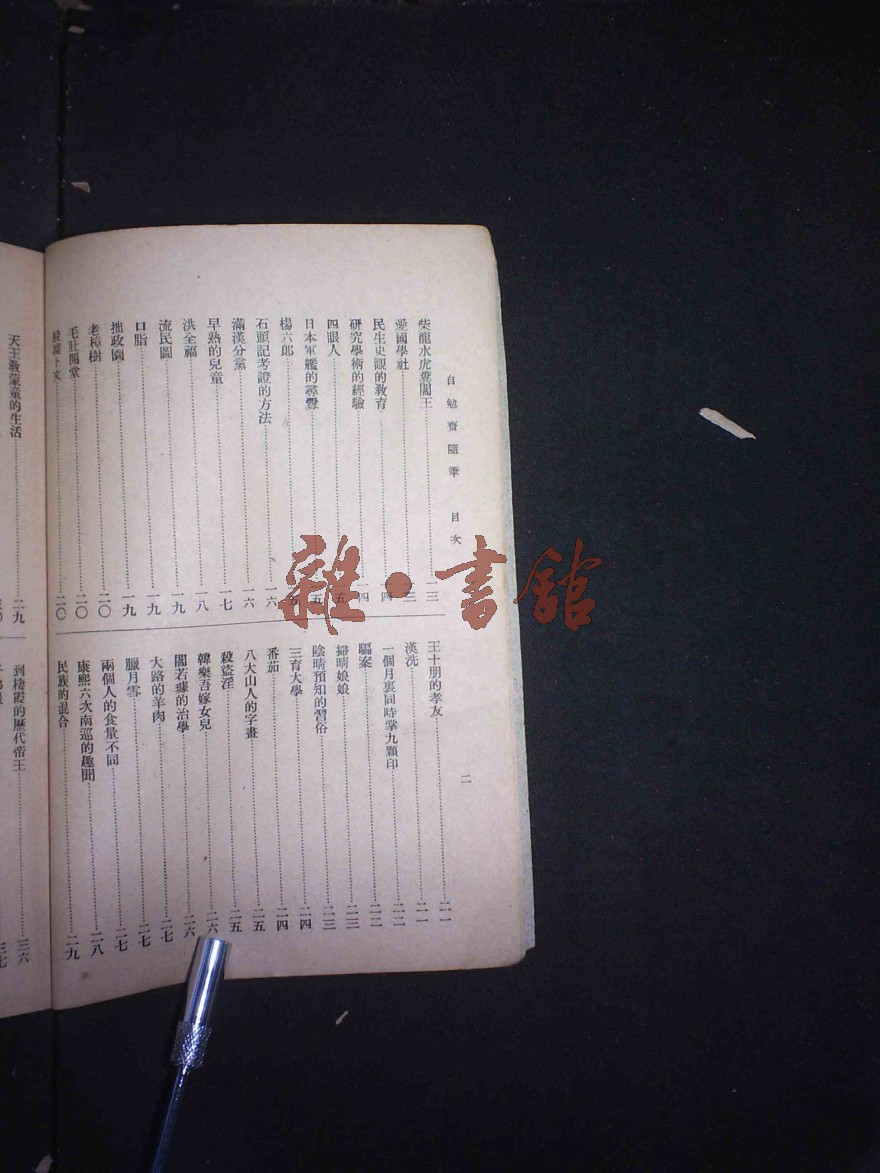 自勉齋隨筆　目次
二
柴龍水虎糞閻王……一三
愛國學社……一三
民生史觀的教育……一四
研究學術的經驗……一四
四眼人……一五
日本軍艦的尋釁……一五
楊六郎……一五
石頭記考證的方法……一六
滿漢分黨……一六
早熟的兒童……一七
洪全福……一八
流民圖……一九
口脂……一九
拙政園……一九
老樟樹……二〇
毛肚開堂……二〇
……二〇
王十朋的孝友……二一
漢洗……二一
一個月裏同時掌九顆印……二二
驅案……二二
掃晴娘娘……二三
陰晴預知的習俗……二三
三育大學……二四
番茄……二四
八大山人的字畫……二五
殺盜淫……二五
韓樂吾嫁女兒……二六
閻若璩的治學……二六
大路的羊肉……二七
臘月雪……二七
兩個人的食量不同……二七
康熙六次南巡的趣聞……二八
民族的混合……二九
天主教蒙童的生活……二九
到棲霞的歷代帝王……三六
三七
雜·書館